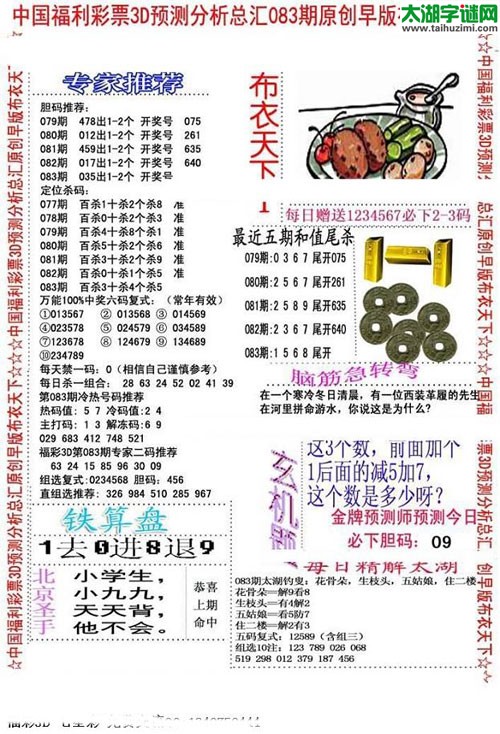 中国福利彩票3D预测分析总汇083期原创早版
太湖字谜网
www.taihuzimi.com
☆中国福利彩票3D预测分析总汇原创早版布衣天下☆☆☆中国福利彩票3D预测分析总汇原创早版布衣天下
专家推荐
胆码推荐：
079期 478出1-2个 开奖号 075
080期 012出1-2个 开奖号 261
081期 459出1-2个 开奖号 635
082期 017出1-2个 开奖号 640
083期 035出1-2个 开奖号
定位杀码：
077期 百杀1十杀2个杀8 准
078期 百杀0十杀2个杀3 准
079期 百杀4十杀8个杀1 准
080期 百杀5十杀2个杀6 准
081期 百杀2十杀4个杀3 准
082期 百杀0十杀1个杀5 准
083期 百杀3十杀4个杀5
万能100%中奖六码复式：（常年有效）
①013567 ② 013568 ③ 014569
④023578 ⑤ 024579 ⑥ 034589
⑦123678 ⑧ 124679 ⑨ 134689
⑩234789
每天禁一码：0（相信自己谨慎参考）
每日杀一组合： 28 63 24 52 02 41 39
第083期冷热号码推荐
热码值：5 7 冷码值：2 4
主打码：1 3 解冻码：6 9
029 683 412 748 521
福彩3D第083期专家二码推荐
63 24 15 85 96 30 09
组选复式：0234568 胆码：456
直组选推荐： 326 984 510 285 967
布衣天下
每日赠送1234567必下2-3码
最近五期和值尾杀
079期：0 3 6 7 尾开075
080期：2 5 6 7 尾开261
081期：2 5 8 9 尾开635
082期：2 3 6 7 尾开640
083期：1 5 6 8 尾开
脑筋急转弯
在一个寒冷冬日清晨，有一位西装革履的先生
在河里拼命游水，你说这是为什么？
玄机
这3个数，前面加个
1后面的减5加7，
这个数是多少呀？
金牌预测师预测今日
必下胆码： 09
铁算盘
1去0进8退9
北京圣于
小学生，
小九九，
天天背，
他不会。
恭喜
上期
命中
每日精解太湖
083期太湖钓叟：花骨朵，生枝头，五姑娘，住二楼
花骨朵══解9看8
生枝头══有4解2
五姑娘══看5防7
住二楼══解2有3
五码复式：12589（含组三）
组选10注：123 789 026 068
519 298 012 379 187 456